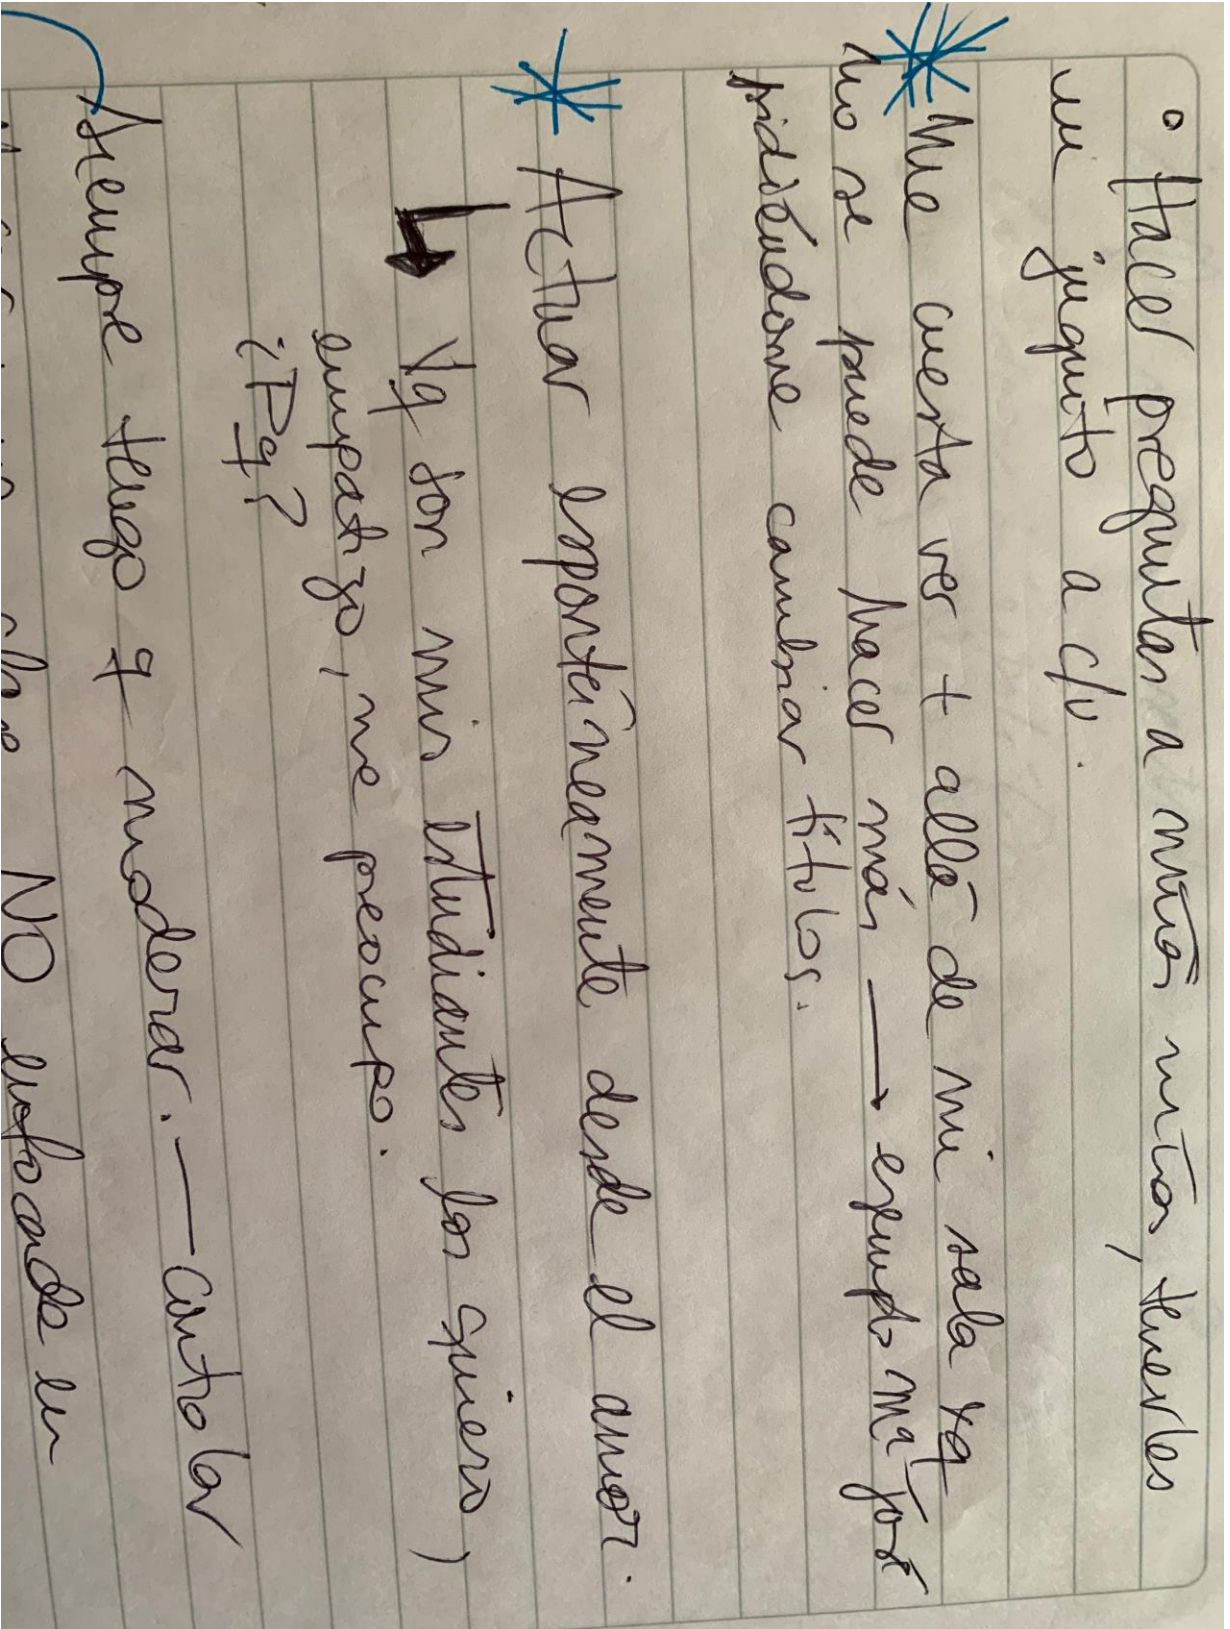 ° Hacer preguntas a mitos mitos, tenerles
un juguito a c/u.
Me cuesta ver + allá de mi sala xq
no se puede hacer más → ejemplo Mª José
pidiéndome cambiar títulos.
Actuar espontáneamente desde el amor.
Xq son mis estudiantes los quiero,
empatizo, me preocupo.
¿Pq?
Siempre tengo q moderar. — Controlar
NO enfocada en